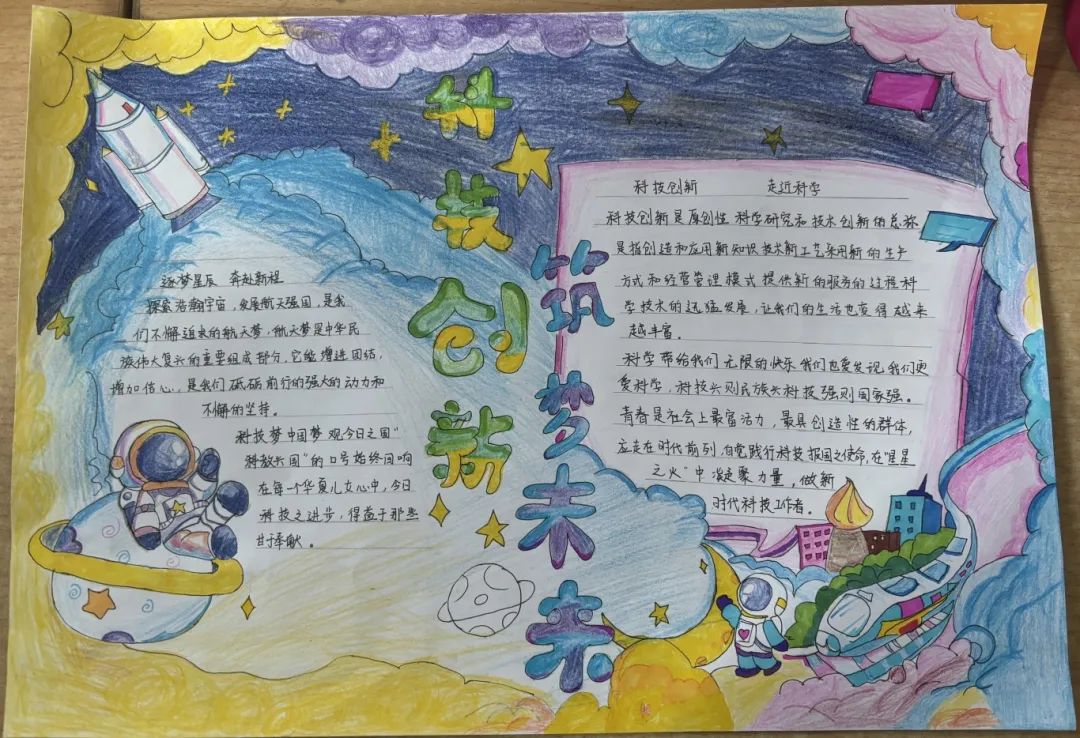 科技创新
筑梦未来
逐梦星辰 奔赴新程
探索浩瀚宇宙,发展航天强国,是我
们不懈追求的航天梦,航天梦是中华民
族伟大复兴的重要组成部分,它能增进团结,
增加信心,是我们砥砺前行的强大的动力和
不懈的坚持。
科技梦中国梦观今日之国"
科放兴国"的口号始终回响
在每一个华夏儿女心中,今日
科技之进步,得益于那些
甘于奉献。
科技创新 走近科学
科技创新是原创性科学研究和技术创新的总称
是指创造和应用新知识技术新工艺采用新的生产
方式和经营管理模式提供新的服务的过程科
学技术的迅猛发展,让我们的生活也变得越来
越丰富。
科学带给我们无限的快乐我们也爱发现我们更
爱科学,科技兴则民族兴科技强则国家强。
青春是社会上最富活力,最具创造性的群体,
应走在时代前列,自觉践行科技报国之使命,在"星星
之火"中凝聚力量,做新
时代科技工作者。